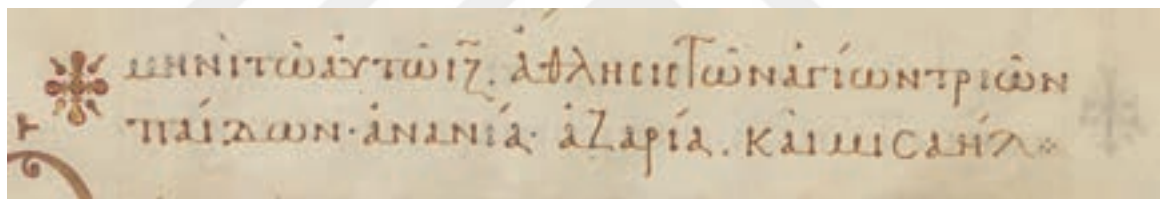 μηνὶ τῶ ἀυτῶ ιζ̄. ἄθλησις τῶν ἁγίων τριῶν
παίδων· ἀνανία· ἀζαρία. καὶ μισαήλ